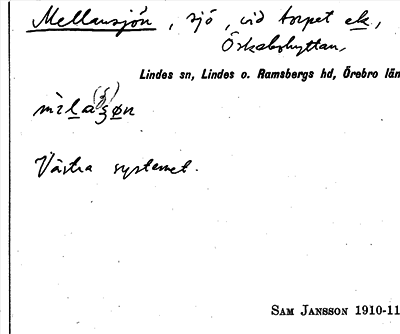 Mellansjön, sjö, vid torpet
Öskebohyttan,
Lindes sn, Lindes o. Ramsbergs hd, Örebro län
Västra systemet.
SAM JANSSON 1910-11